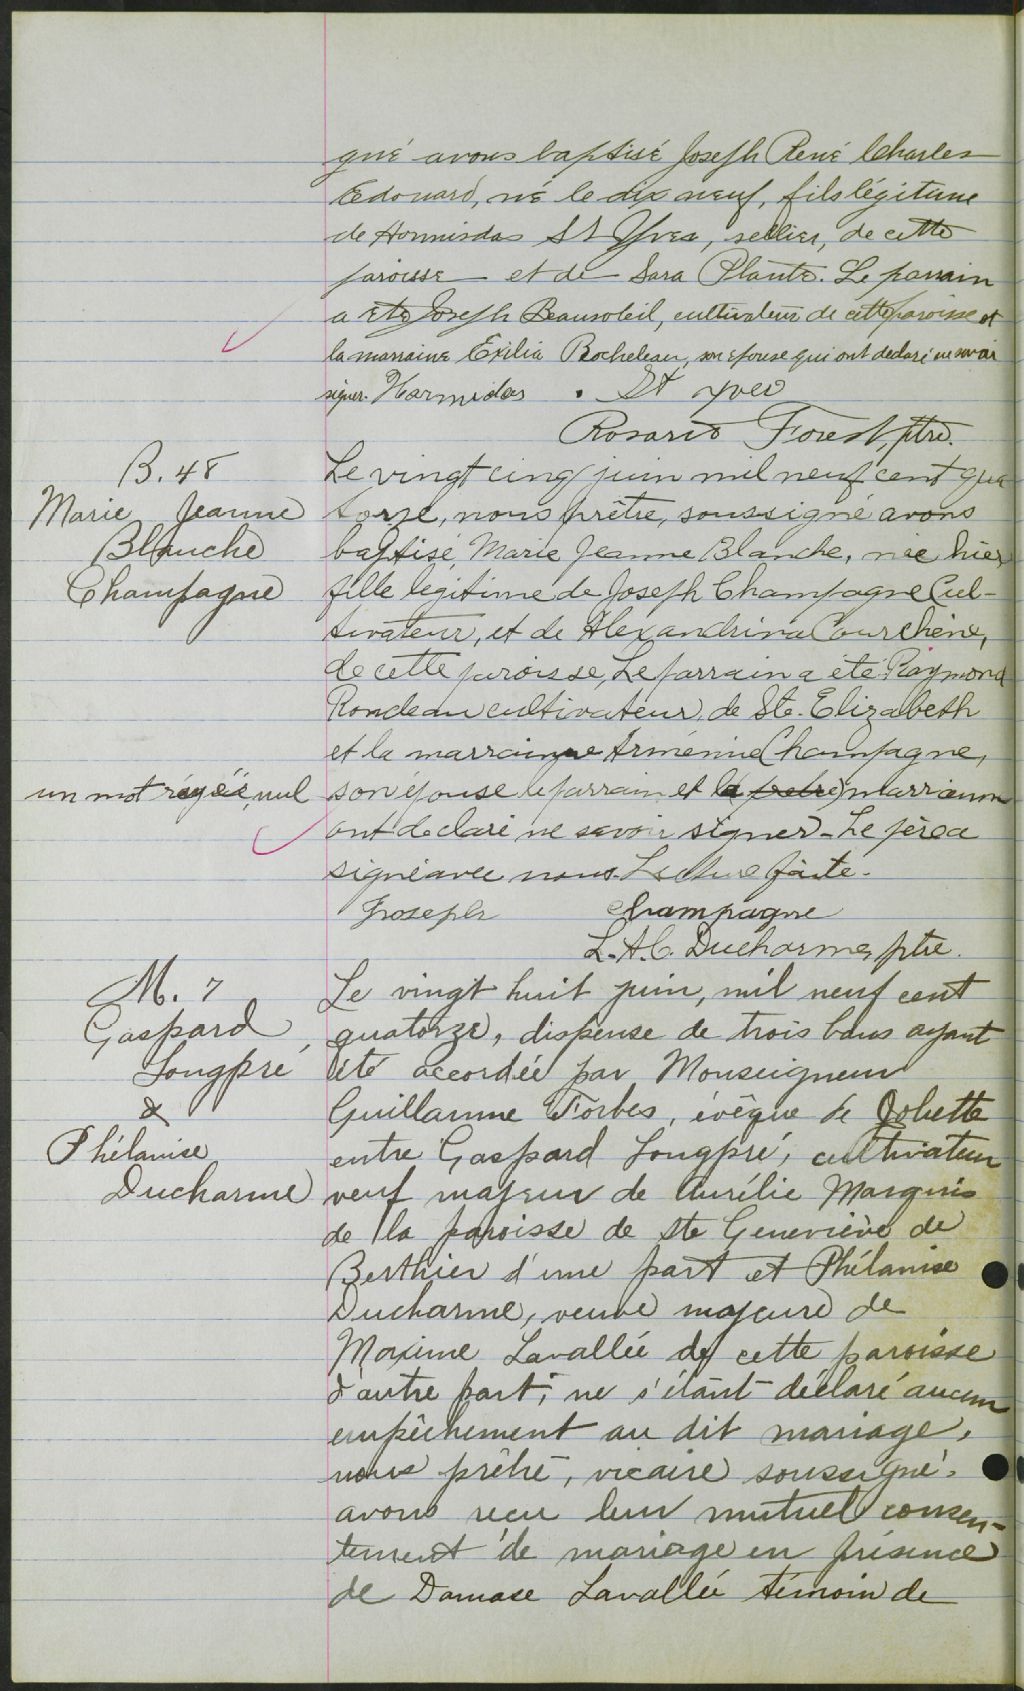 gné avons baptisé Joseph René Charles
Edouard, né le dix neuf, fils légitime
de Hormisdas St Yves, sellier, de cette
paroisse et de Sara Plante. Le parrain
a été Joseph Beausoleil, cultivateur de cette paroisse et
la marraine Exilia Rocheleau, son épouse qui ont declaré ne savoir
signer. Harmidas St Yves
Rosario Forest, ptre.
B. 48
Marie Jeanne
Blanche
Champagne
Le vingt cinq juin mil neuf cent qua
torze, nous prêtre, soussigné avons
baptisé, Marie Jeanne Blanche, née hier
fille legitime de Joseph Champagne Cul-
tivateur, et de Alexandrina Courchêne,
de cette paroisse, Le parrain a été Raymond
Rondeau cultivateur, de Ste. Elizabeth
et la marrainne Arménine Champagne,
un mot rayéé, nul
son épouse le parrain et la marrainne
ont declaré ne savoir signer. Le père a
signé avec nous. Lecture faite.
Joseph Champagne
L. A. C. Ducharme, ptre.
M. 7
Gaspard
Longpré
&
Phélanise
Ducharme
Le vingt huit juin, mil neuf cent
quatorze, dispense de trois bans ayant
été accordée par Monseigneur
Guillaume Forbes, évêque de Joliette
entre Gaspard Longpré, cultivateur
veuf majeur de Aurélie Marquis
de la paroisse de Ste Geneviève de
Berthier d'une part et Phélanise
Ducharme, veuve majeure de
Maxime Lavallée de cette paroisse
d'autre part; ne s'étant déclaré aucun
empêchement au dit mariage,
nous prêtre, vicaire soussigné.
avons reçu leur mutuel consen-
tement de mariage en présence
de Damase Lavallée témoin de